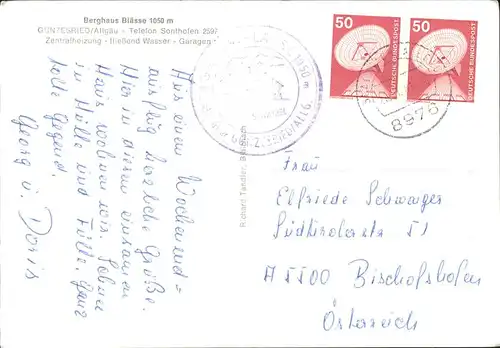 Berghaus Blässe 1050 m
GUNZESRIED/Allgäu - Telefon Sonthofen 2597
Zentralheizung - fließend Wasser - Garagen
Aus einem Wochenend=
ausflug herzliche Grüße.
Hier in diesem einsamen
Haus wohnen wir. Schnee
in Hülle und Fülle. Ganz
tolle Gegend.
Georg u. Doris
1050 m
50
DEUTSCHE BUNDESPOST
50
DEUTSCHE BUNDESPOST
8976
Richard Tandler,
Frau
Elfriede Schwaiger
Südtirolerstr 51
A 5500 Bischofshofen
Österreich